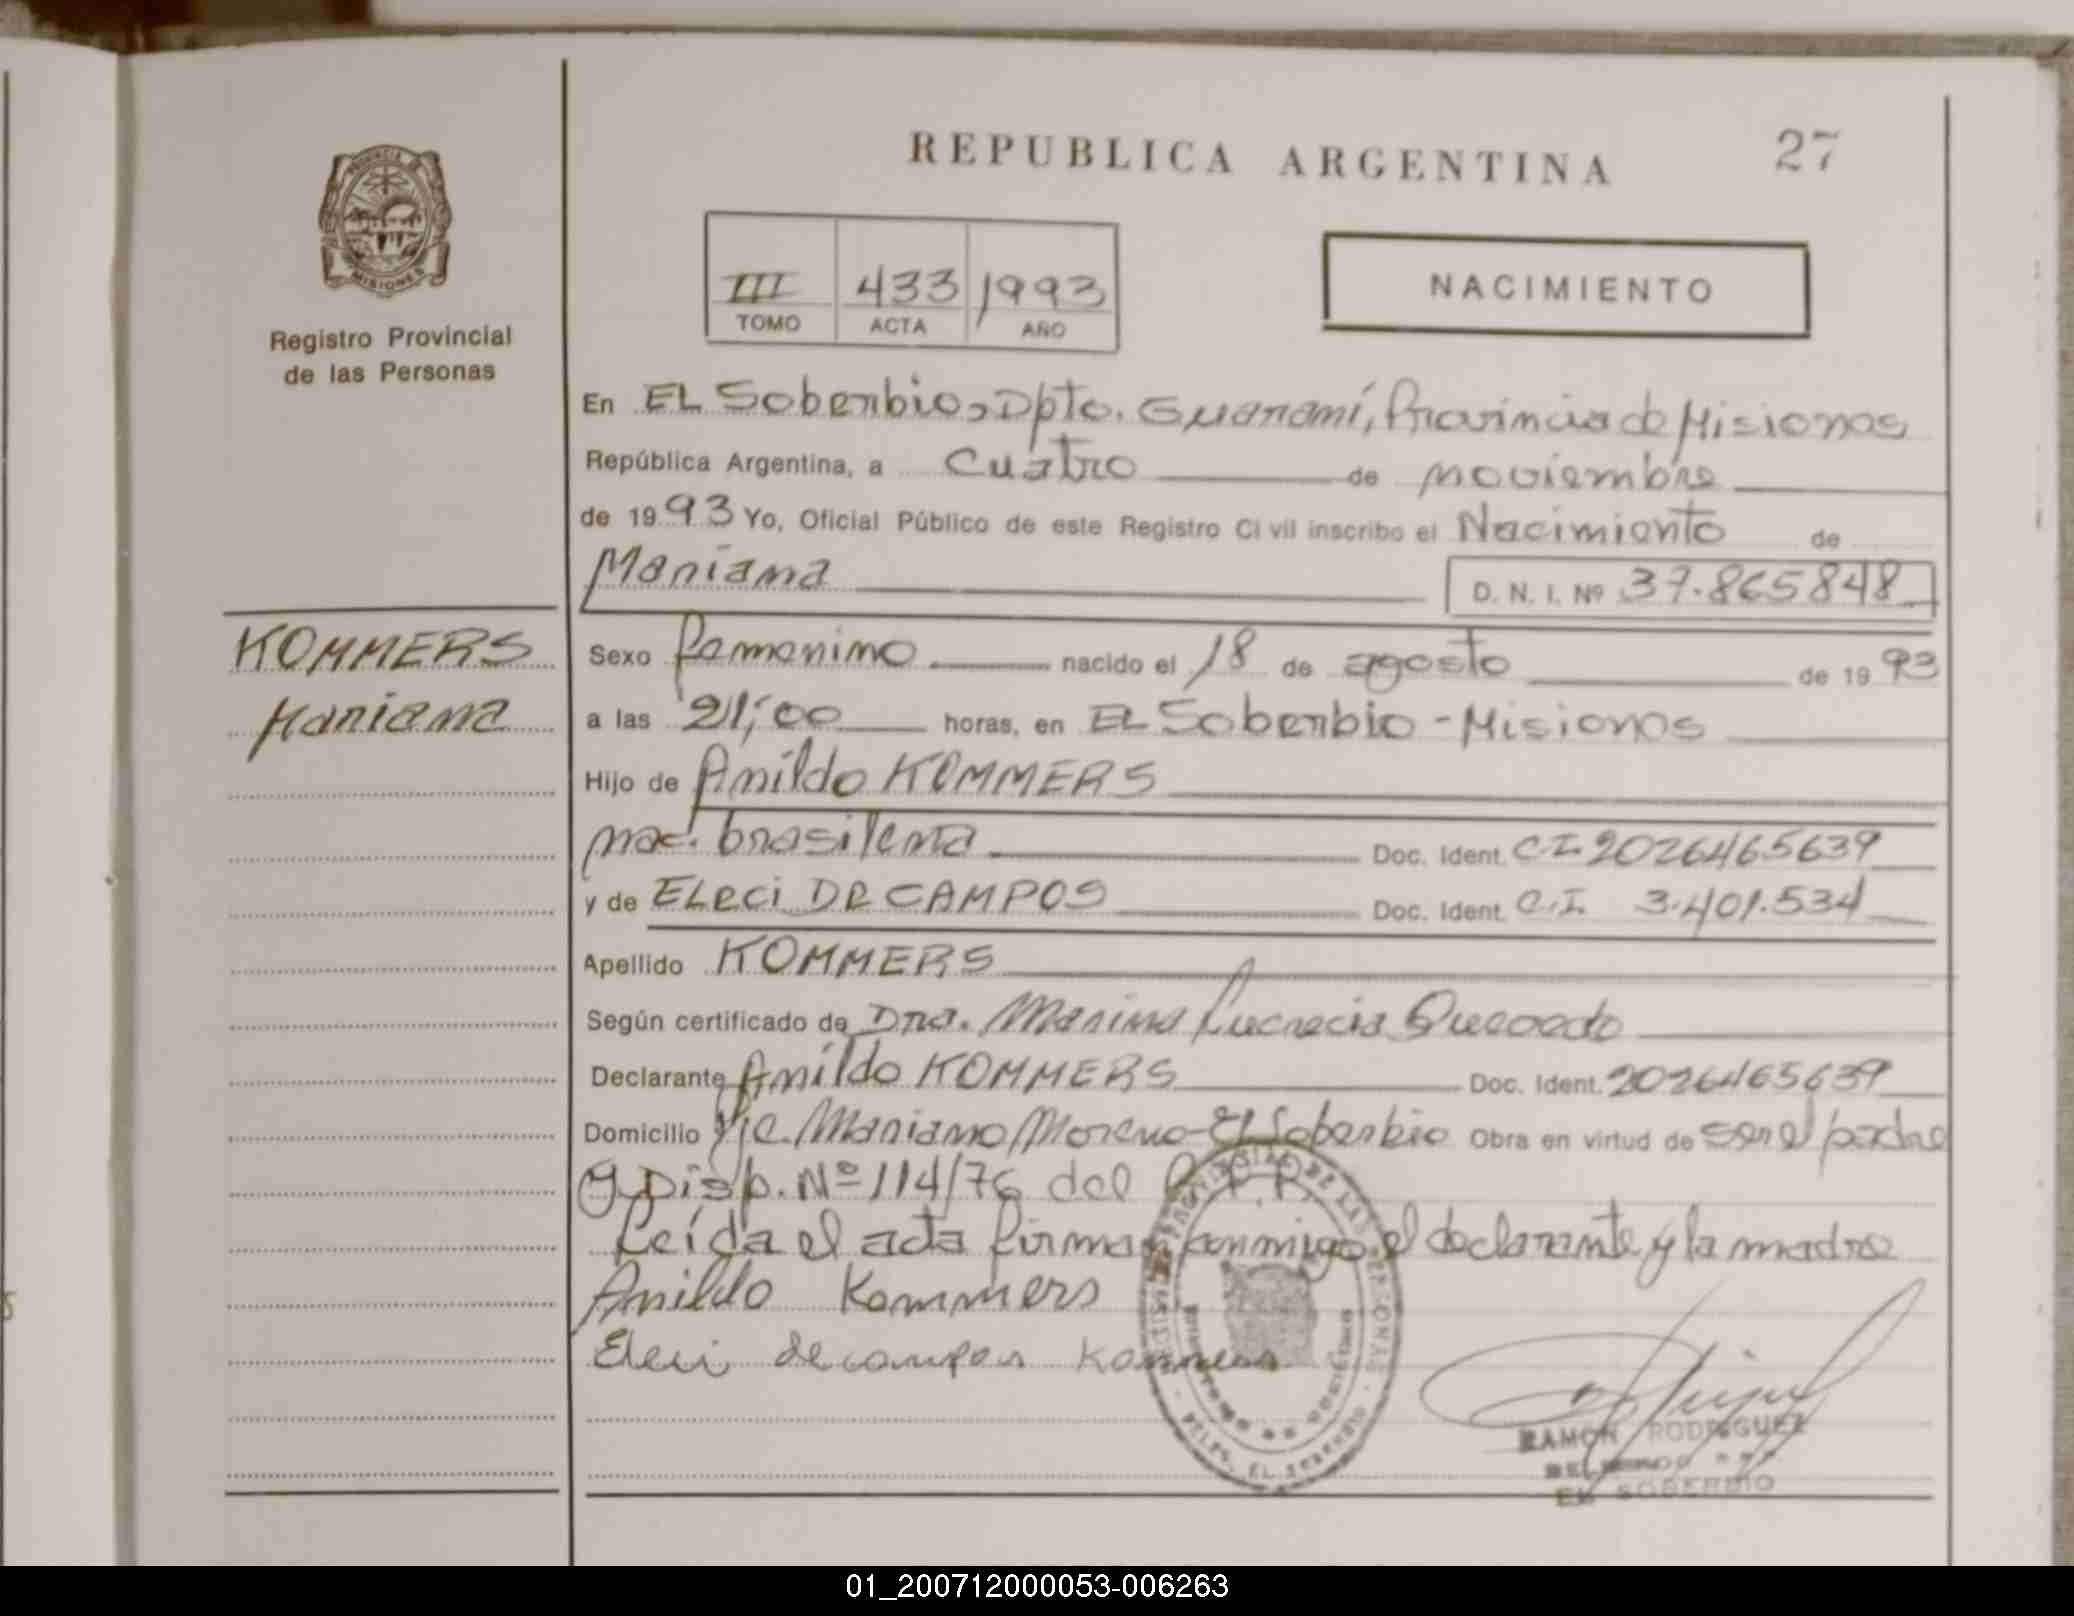 REPUBLICA ARGENTINA
27
PROVINCIA DE
MISIONES
Registro Provincial
de las Personas
III 433 1993
TOMO ACTA AÑO
NACIMIENTO
En EL Soberbio, Dpto. Guaraní, Provincia de Misiones
República Argentina, a cuatro de noviembre
de 1993 Yo, Oficial Público de este Registro Civil inscribo el Nacimiento de
Mariana D. N. I. Nº 37.865848
KOMMERS
Mariana
Sexo femenino nacido el 18 de agosto de 1993
a las 21,00 horas, en EL Soberbio - Misiones
Hijo de Anildo KOMMERS
nac. brasilena Doc. Ident. CI 2026465639
y de ELeci DE CAMPOS Doc. Ident. C.I. 3.401.534
Apellido KOMMERS
Según certificado de Dra. Marina Lucrecia Quevedo
Declarante Anildo KOMMERS Doc. Ident. 2026465639
Domicilio Pje. Mariano Moreno - El Soberbio Obra en virtud de ser el padre
y Disp. Nº 114/76 del R.P.P.
Leída el acta firman conmigo el declarante y la madre
Anildo Kommers
Eleci de campos Kommers
RAMON RODRIGUEZ
EL SOBERBIO
01_200712000053-006263